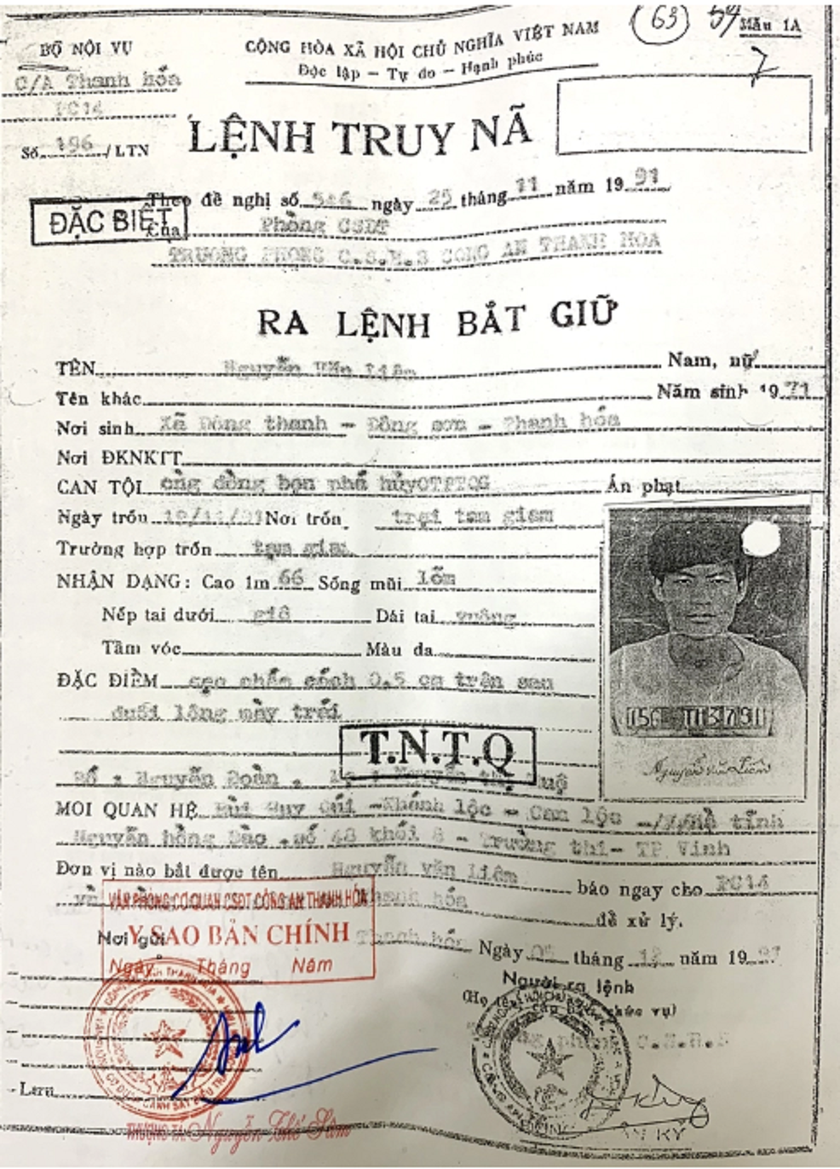 63 54 Mẫu 1A
BỘ NỘI VỤ
CỘNG HÒA XÃ HỘI CHỦ NGHĨA VIỆT NAM
C/A Thanh hóa
Độc lập - Tự do - Hạnh phúc
7
PC14
Số 196 /LTN
LỆNH TRUY NÃ
Theo đề nghị số 546 ngày 25 tháng 11 năm 19 91
ĐẶC BIỆT
Của Phòng CSĐT
TRƯỞNG PHÒNG C.S.H.S CÔNG AN THANH HOA
RA LỆNH BẮT GIỮ
TÊN Nguyễn Văn Liêm Nam, nữ
Tên khác Năm sinh 19 71
Nơi sinh Xã Đông thanh - Đông sơn - Thanh hóa
Nơi ĐKNKTT
CAN TỘI cùng đồng bọn phá hủy CTPTQG Án phạt
Ngày trốn /11/91 Nơi trốn trại tạm giam
Trường hợp trốn tạm giam
NHẬN DẠNG: Cao 1m 66 Sống mũi lõm
Nếp tai dưới giô Dái tai vuông
Tầm vóc Màu da
ĐẶC ĐIỂM sẹo chấm cách 0,5 cm trên sau
đuôi lông mày trái
156 TH3791
T.N.T.Q
Nguyễn Văn Liêm
Bố : Nguyễn Đoàn . Mẹ : Nguyễn thị Huệ
MỐI QUAN HỆ Bùi Huy Cúi - Khánh lộc - Can lộc - Hà tĩnh
Nguyễn hồng Đào số 48 khối 8 - Trường thi - TP Vinh
Đơn vị nào bắt được tên Nguyễn văn Liêm báo ngay cho PC14
VĂN PHÒNG CƠ QUAN CSĐT CÔNG AN THANH HÓA
Thanh hóa để xử lý.
Nơi gửi
Y SAO BẢN CHÍNH
Ngày Tháng Năm
Thanh hóa Ngày tháng 12 năm 19 91
Người ra lệnh
(Họ tên, chức vụ)
phòng C.S.H.S
Lưu
THƯỢNG TÁ Nguyễn Thế Sâm